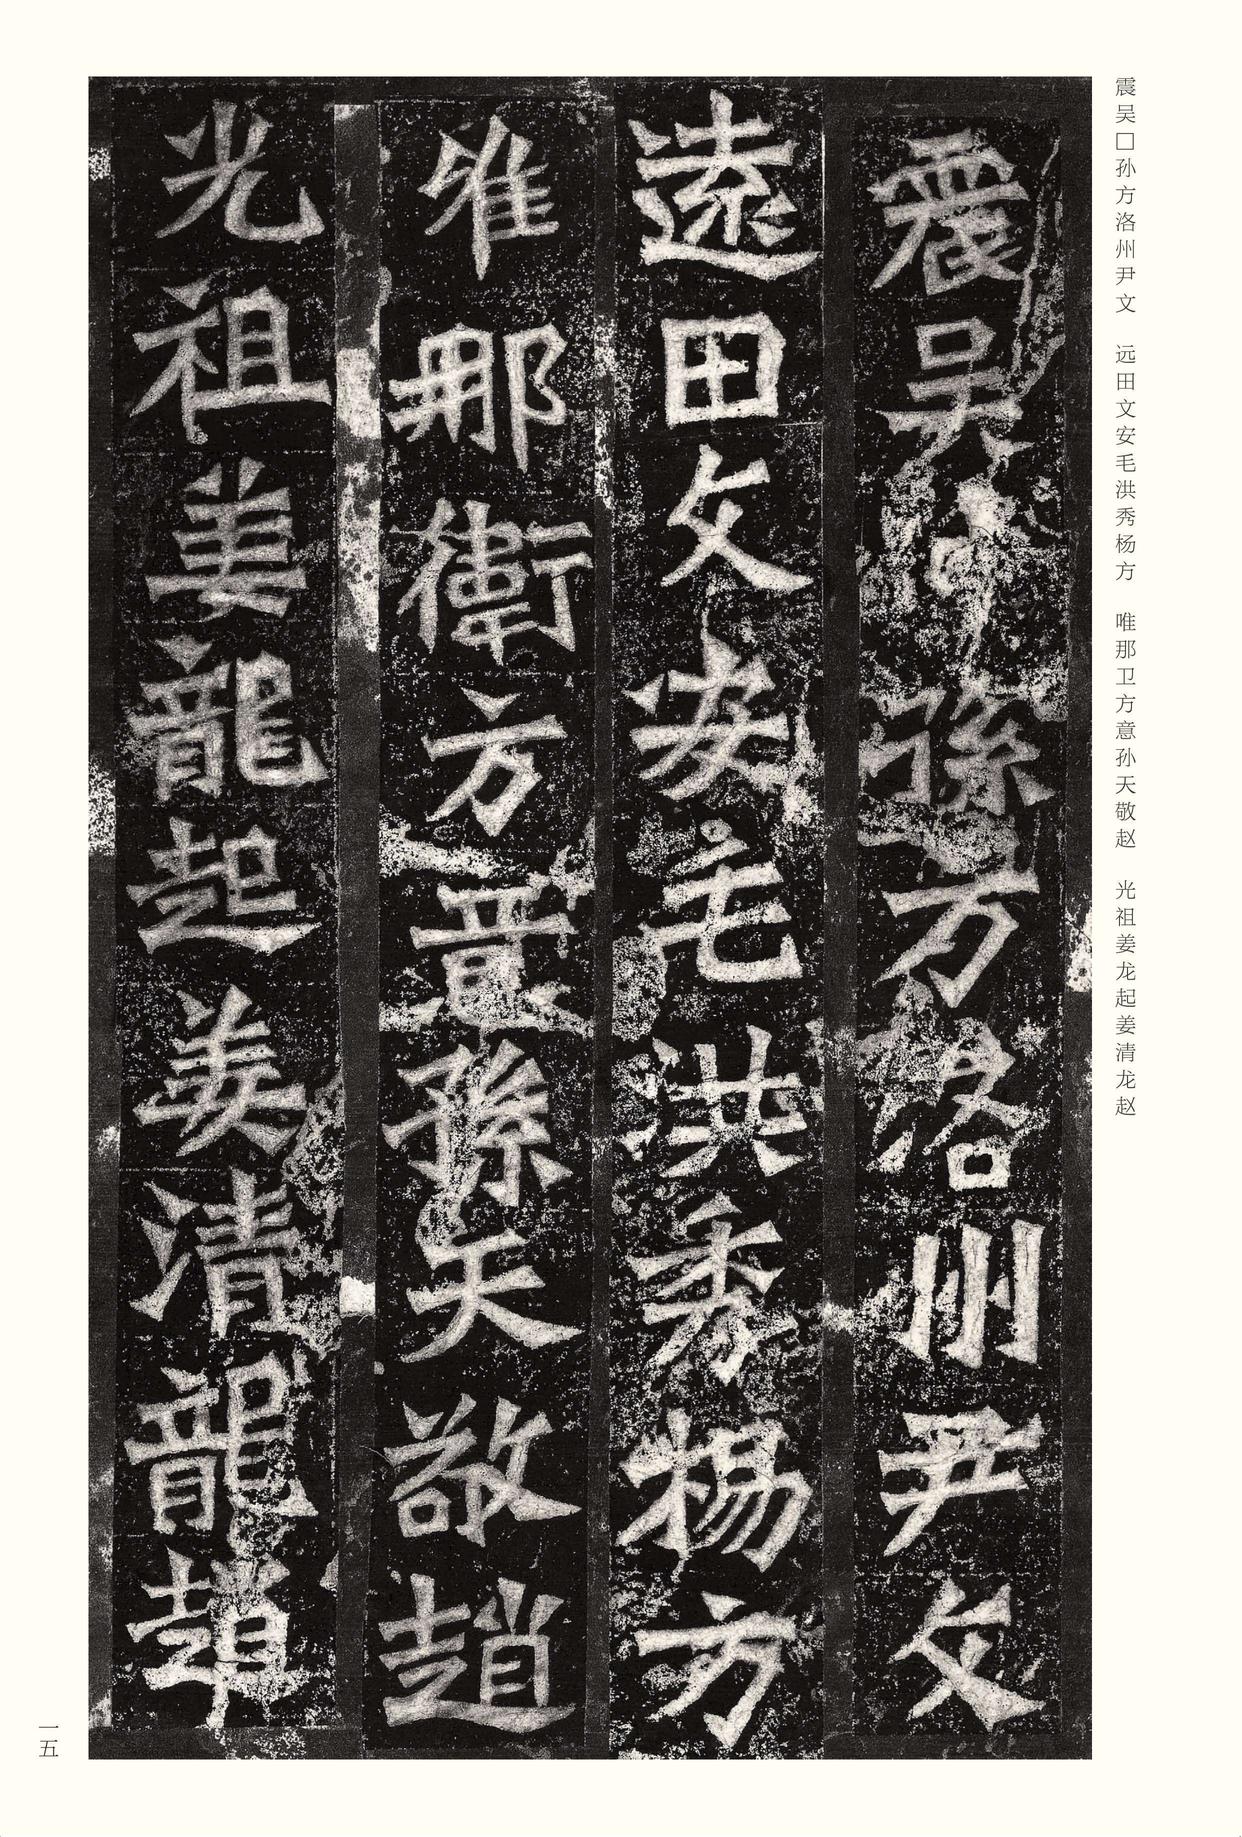 震吴□孙方洛州尹文 远田文安毛洪秀杨方 唯那卫方意孙天敬赵 光祖姜龙起姜清龙赵
震吳孫方洛州尹文
遠田文安毛洪秀楊方
唯那衛方意孫天敬趙
光祖姜龍起姜清龍趙
一五